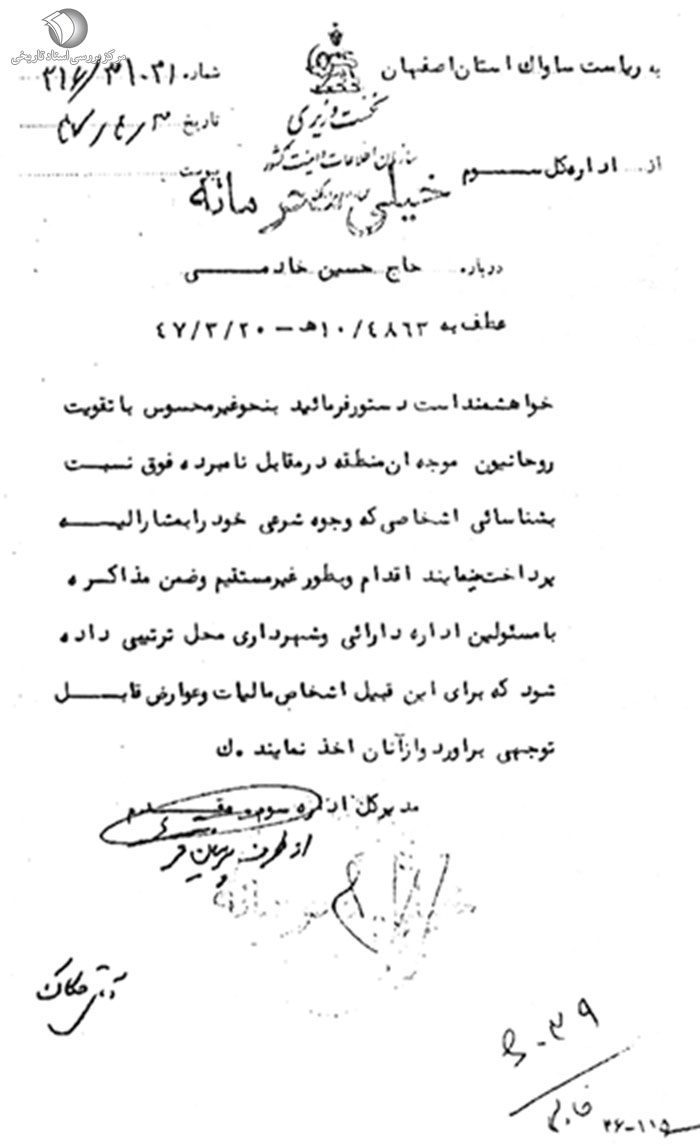 مرکز بررسی اسناد تاریخی
به ریاست ساواک استان اصفهان
نخست وزیری
سازمان اطلاعات و امنیت کشور
شماره ۳۱۶/۳۱۰۳۱
تاریخ ۴۷/۴/۳
پیوست
از اداره کل سوم
خیلی محرمانه
درباره حاج حسین خادمی
عطف به ۱۰/٤٨٦۳ هـ – ٤۷/۳/۲۰
خواهشمند است دستور فرمائید بنحو غیر محسوس با تقویت
روحانیون موجه ان منطقه در مقابل نامبرده فوق نسبت
بشناسائی اشخاصی که وجوه شرعی خود را بمشارالیه
پرداخت مینمایند اقدام وبطور غیرمستقیم وضمن مذاکره
با مسئولین اداره دارائی وشهرداری محل ترتیبی داده
شود که برای این قبیل اشخاص مالیات وعوارض قابل
توجهی براورد وازآنان اخذ نمایند .ک
مدیرکل اداره سوم . مقدم
از طرف
۳۹
۲۶-۱۱۵